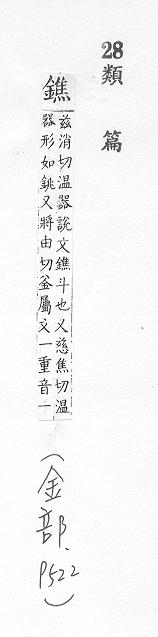 28類篇
鐎
兹消切温器說文鐎斗也又慈焦切温
器形如銚又將由切釜屬文一重音一
(金部、P522)